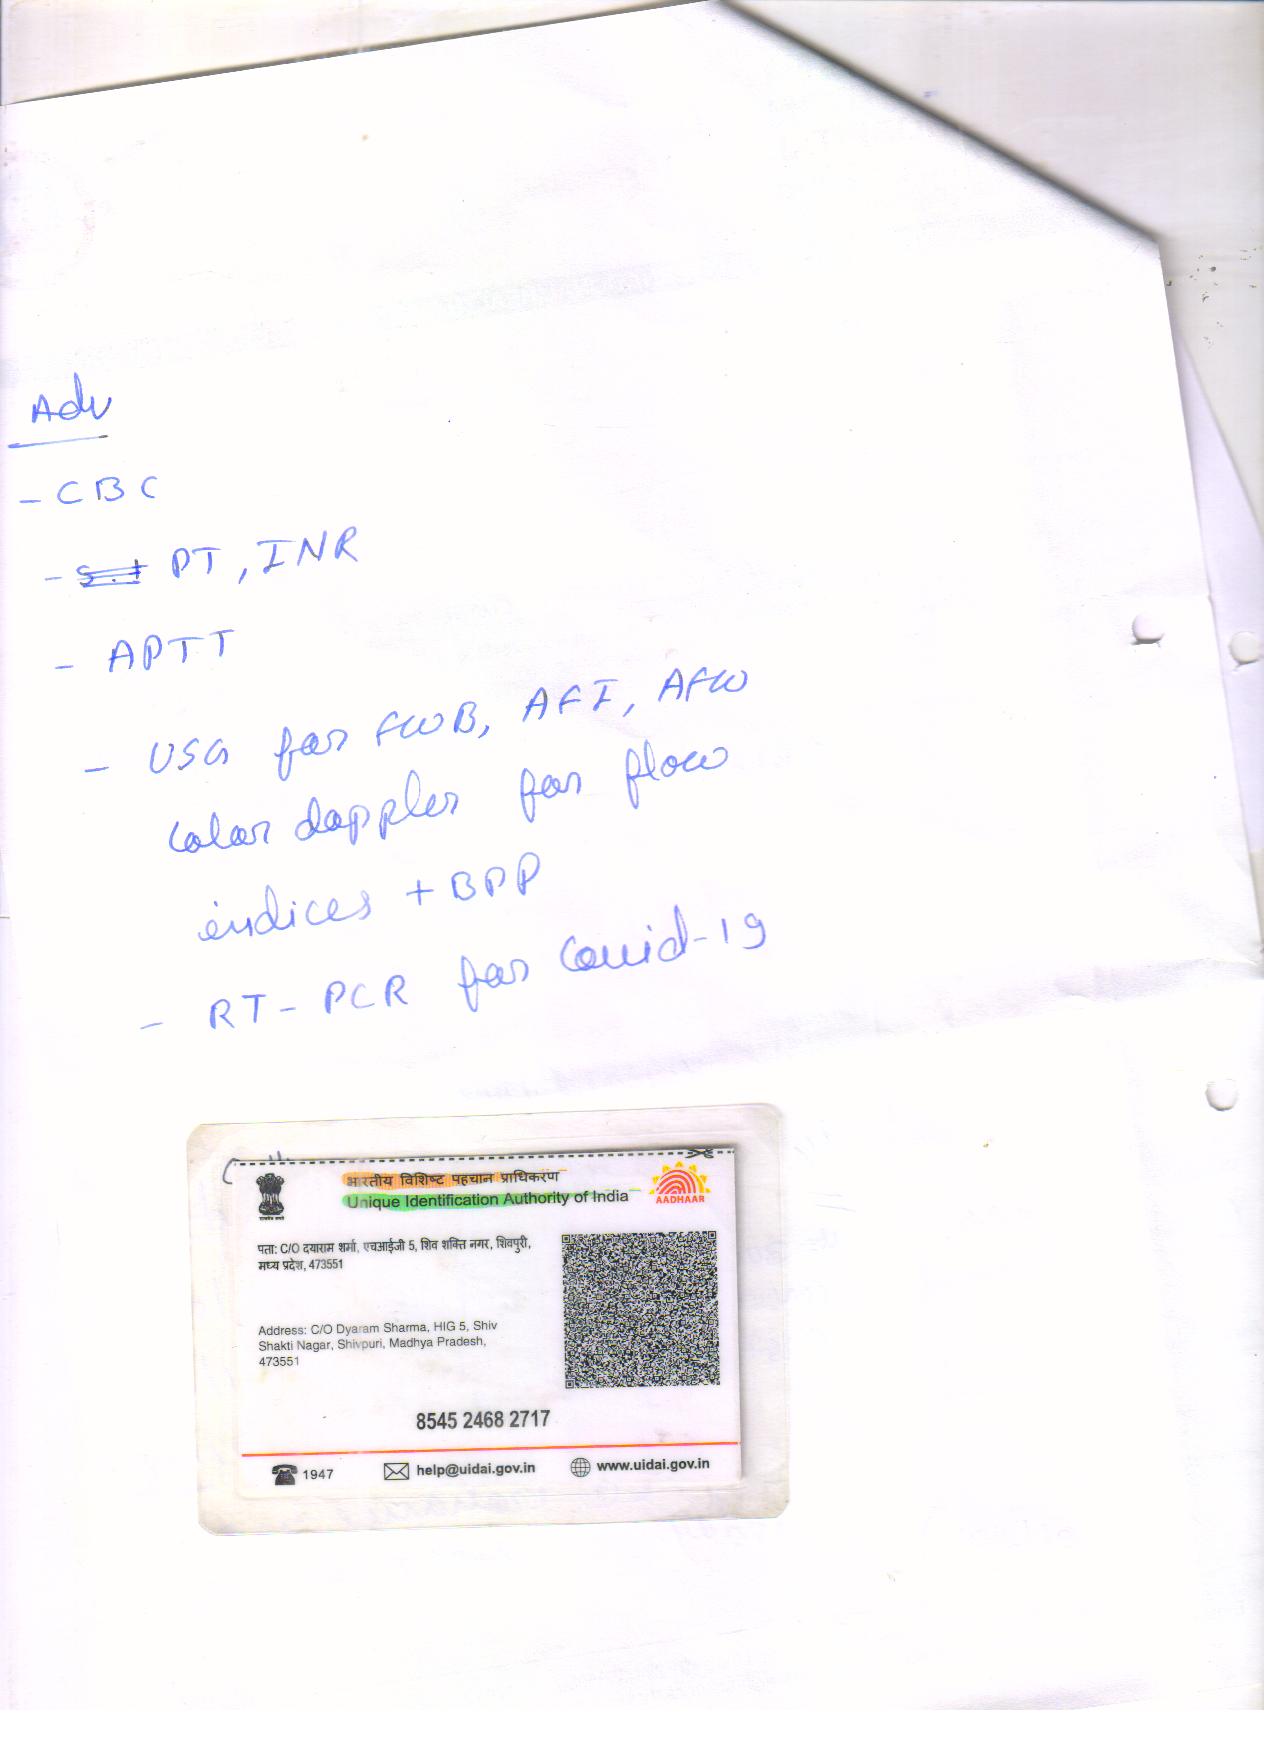 Adv
- CBC
- PT, INR
- APTT
- USG for FWB, AFI, AFW
Color doppler for flow
indices + BPP
- RT-PCR for Covid-19
भारतीय विशिष्ट पहचान प्राधिकरण
Unique Identification Authority of India
AADHAAR
पता: C/O दयाराम शर्मा, एचआईजी 5, शिव शक्ति नगर, शिवपुरी,
मध्य प्रदेश, 473551
Address: C/O Dyaram Sharma, HIG 5, Shiv
Shakti Nagar, Shivpuri, Madhya Pradesh,
473551
8545 2468 2717
1947
help@uidai.gov.in
www.uidai.gov.in